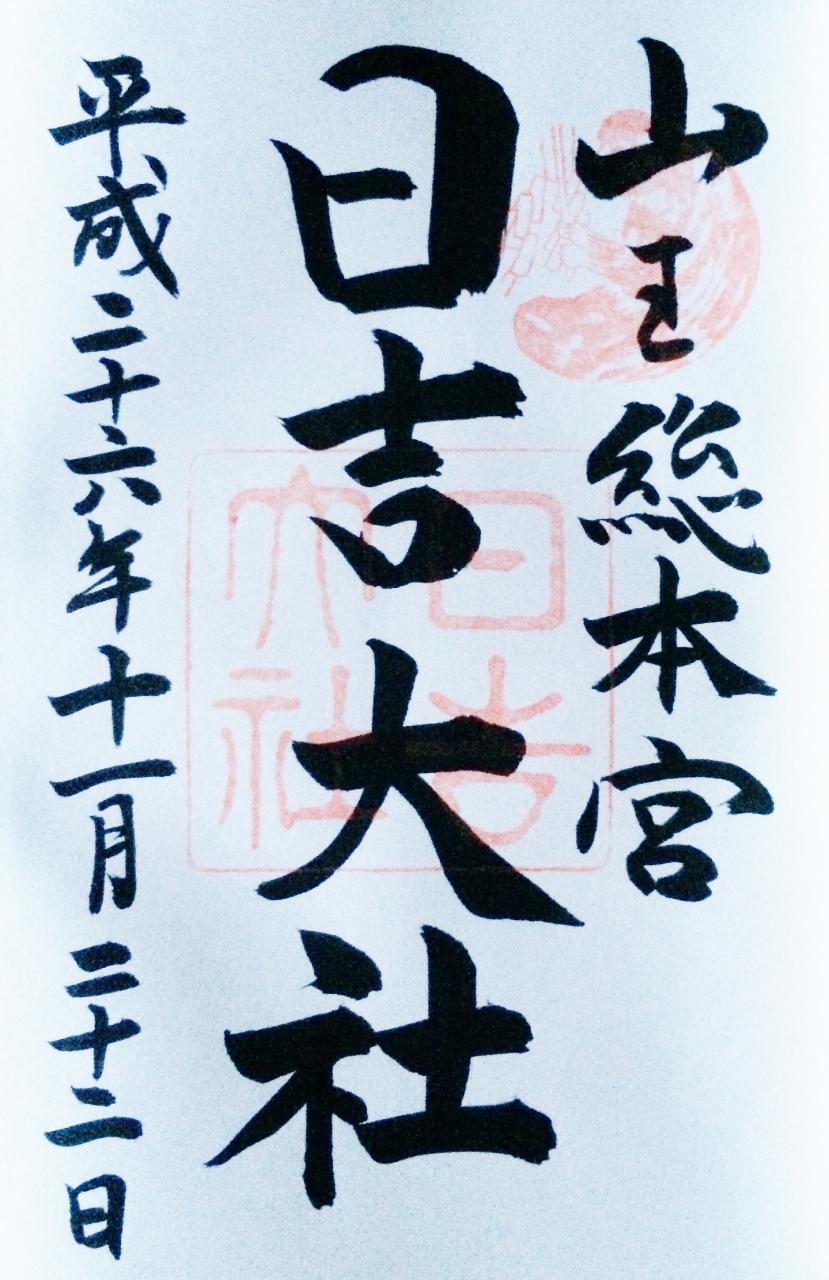 山王総本宮
日吉大社
平成二十六年十一月二十二日
日吉大社